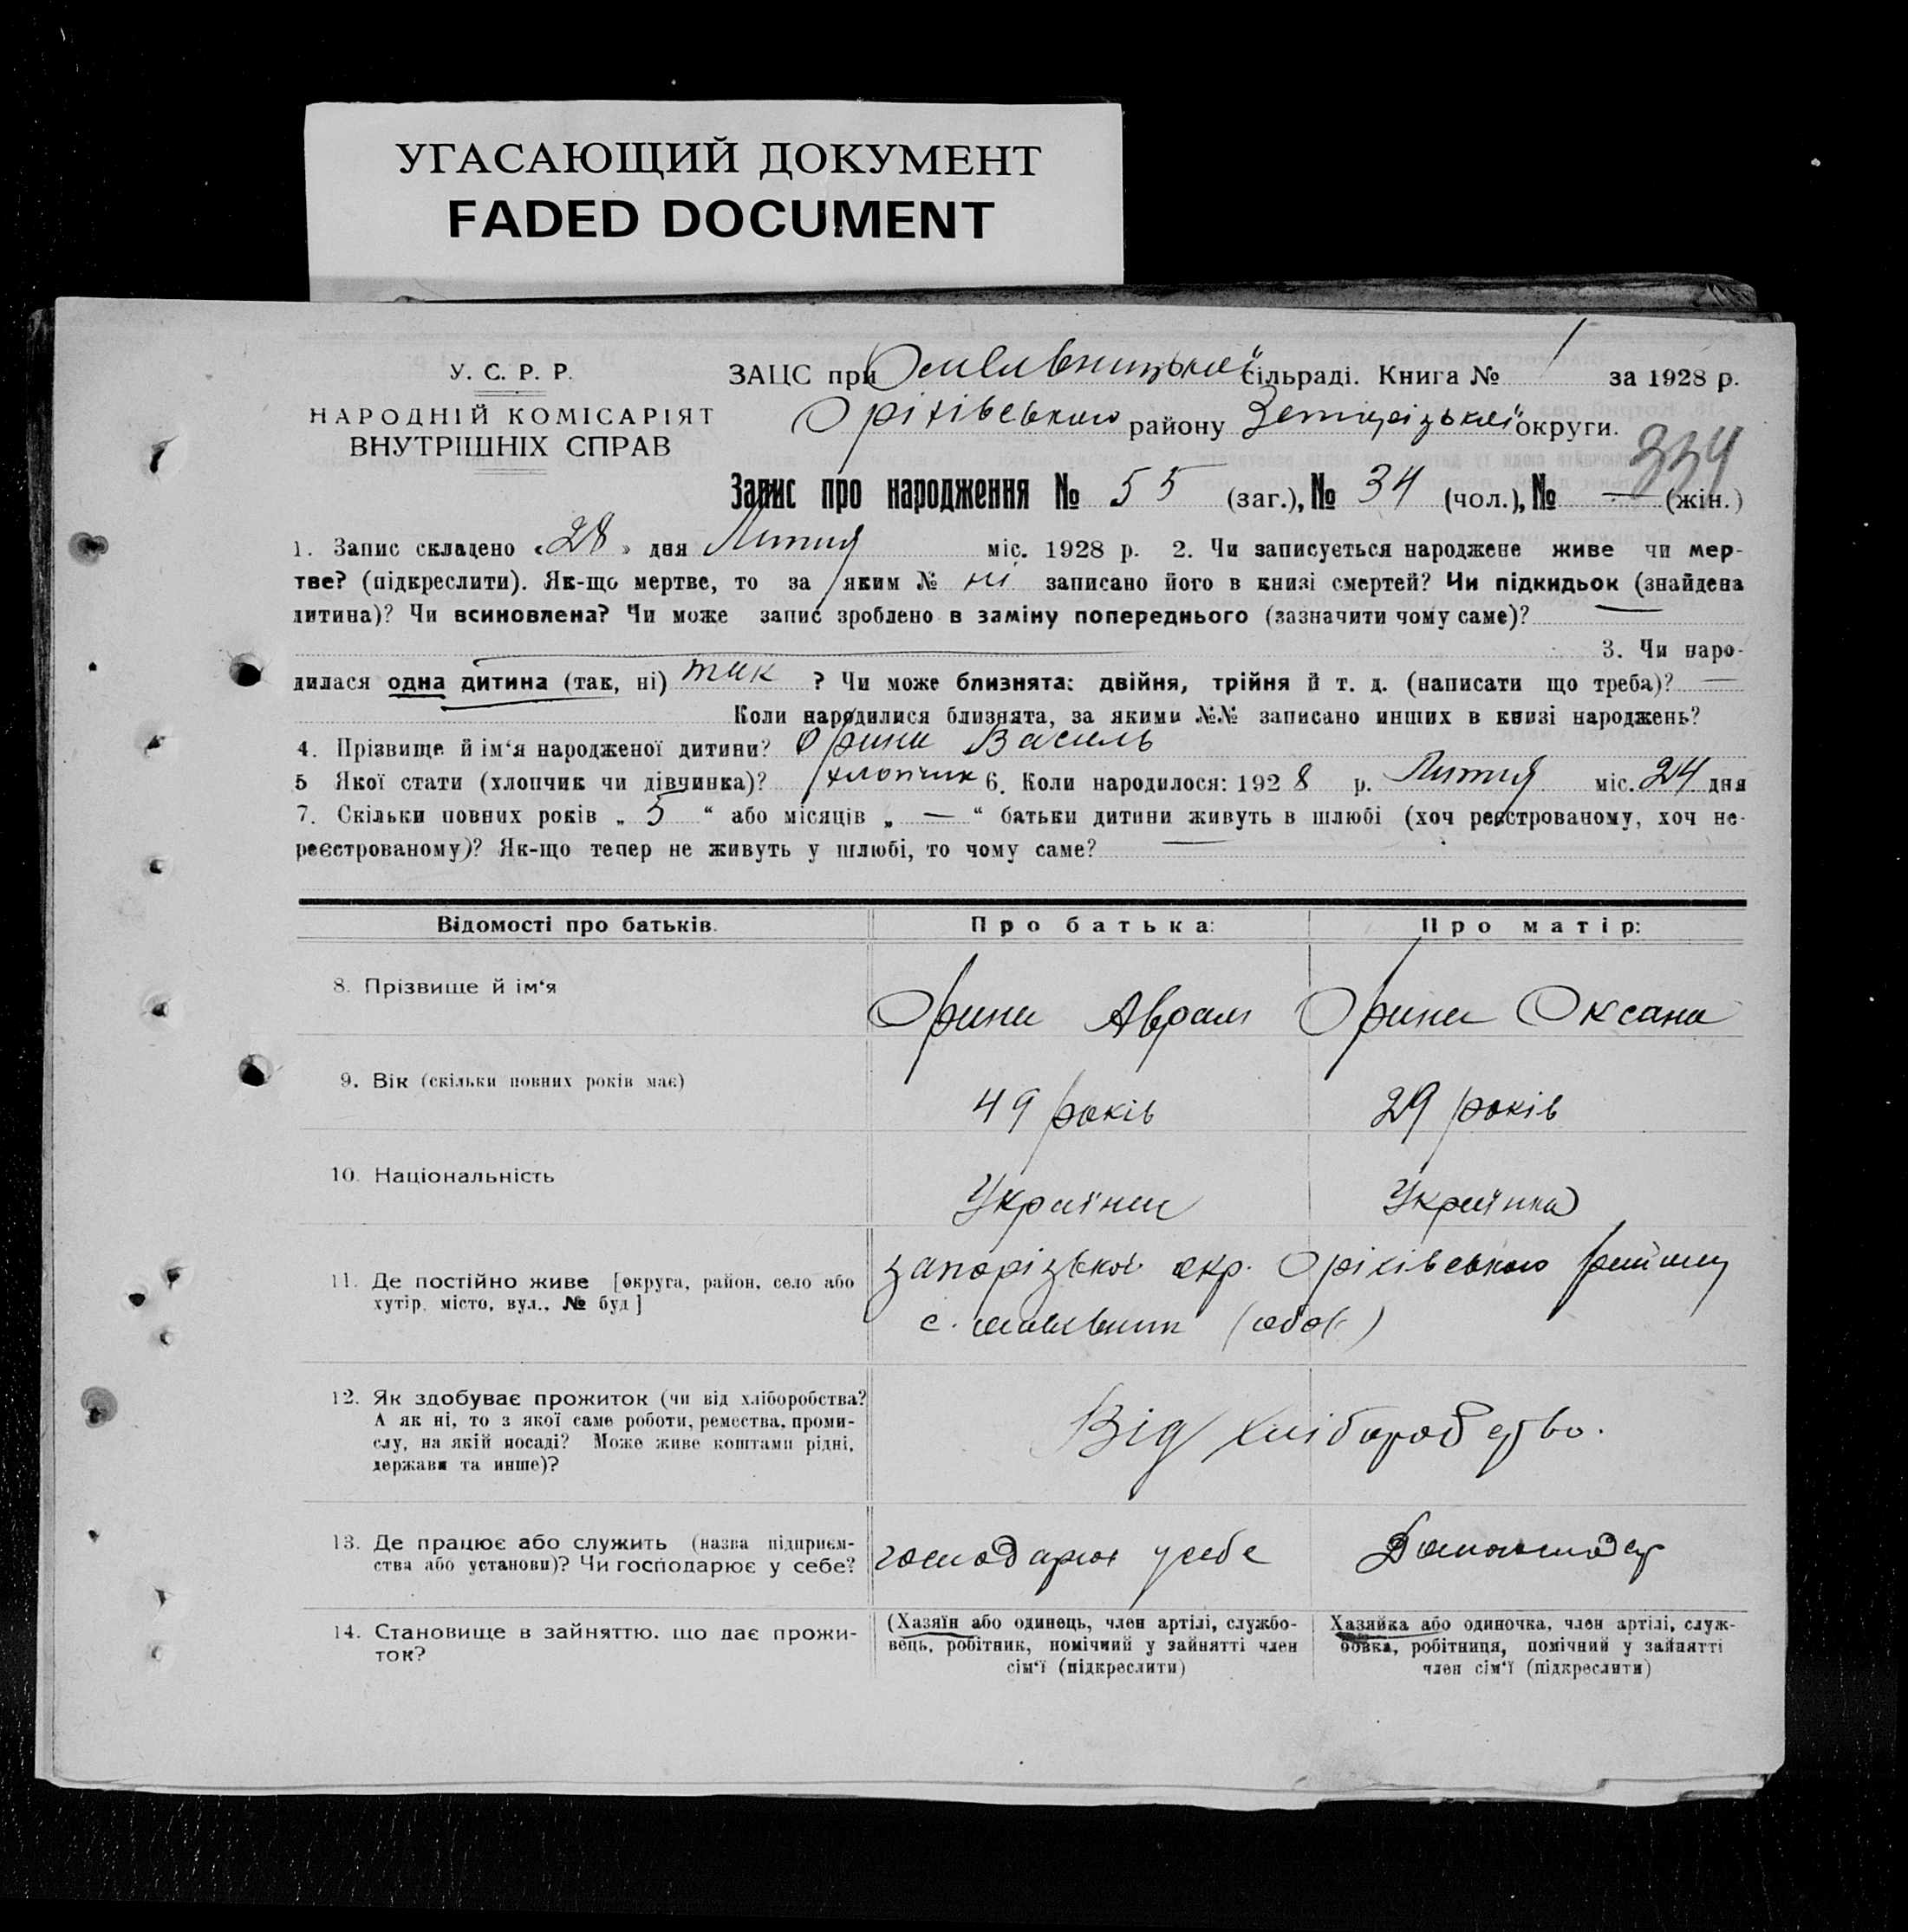 УГАСАЮЩИЙ ДОКУМЕНТ
FADED DOCUMENT
У. С. Р. Р.
НАРОДНІЙ КОМІСАРІЯТ
ВНУТРІШНІХ СПРАВ
ЗАЦС при сільраді. Книга № 1 за 1928 р.
Оріхівського району Запорізької округи.
334
Запис про народження № 55 (заг.), № 34 (чол.), № — (жін.)
1. Запис складено «28» дня Липня міс. 1928 р. 2. Чи записується народжене живе чи мер-
тве? (підкреслити). Як-що мертве, то за яким № ні записано його в книзі смертей? Чи підкидьок (знайдена
дитина)? Чи всиновлена? Чи може запис зроблено в заміну попереднього (зазначити чому саме)? —
3. Чи наро-
дилася одна дитина (так, ні) так ? Чи може близнята: двійня, трійня й т. д. (написати що треба)? —
Коли народилися близнята, за якими №№ записано инших в книзі народжень?
4. Прізвище й ім‘я народженої дитини? Орина Василь
5 Якої стати (хлопчик чи дівчинка)? хлопчик 6. Коли народилося: 1928 р. Липня міс. 24 дня
7. Скільки повних років „ 5 “ або місяців „ — “ батьки дитини живуть в шлюбі (хоч реєстрованому, хоч не-
реєстрованому)? Як-що тепер не живуть у шлюбі, то чому саме? —
Відомості про батьків.
Про батька:
Про матір:
8. Прізвище й ім‘я
Орина Аврам
Орина Оксана
9. Вік (скільки повних років має)
49 років
29 років
10. Національність
Українец
Українка
11. Де постійно живе [округа, район, село або
хутір, місто, вул., № буд]
запорізької окр. Оріхівського району
с. (обоє)
12. Як здобуває прожиток (чи від хліборобства?
А як ні, то з якої саме роботи, ремества, проми-
слу, на якій посаді? Може живе коштами рідні,
держави та инше)?
Від хліборобство.
13. Де працює або служить (назва підприєм-
ства або установи)? Чи господарює у себе?
господарює у себе
14. Становище в зайняттю, що дає прожи-
ток?
(Хазяїн або одинець, член артілі, службо-
вець, робітник, помічний у зайнятті член
сім‘ї (підкреслити)
Хазяйка або одиночка, член артілі, служ-
бовка, робітниця, помічний у зайнятті
член сім‘ї (підкреслити)